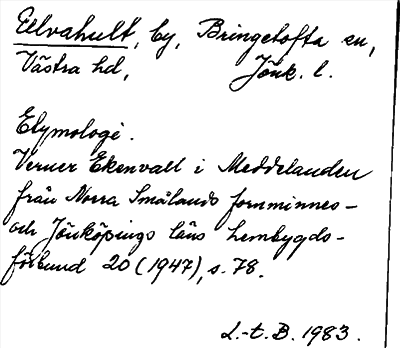 Elvahult, by, Bringetofta sn,
Västra hd, Jönk. l.
Etymologi.
Verner Ekenvall i Meddelanden
från Norra Smålands fornminnes-
och Jönköpings läns hembygds-
förbund 20 (1947), s. 78.
L.-t. B. 1983.